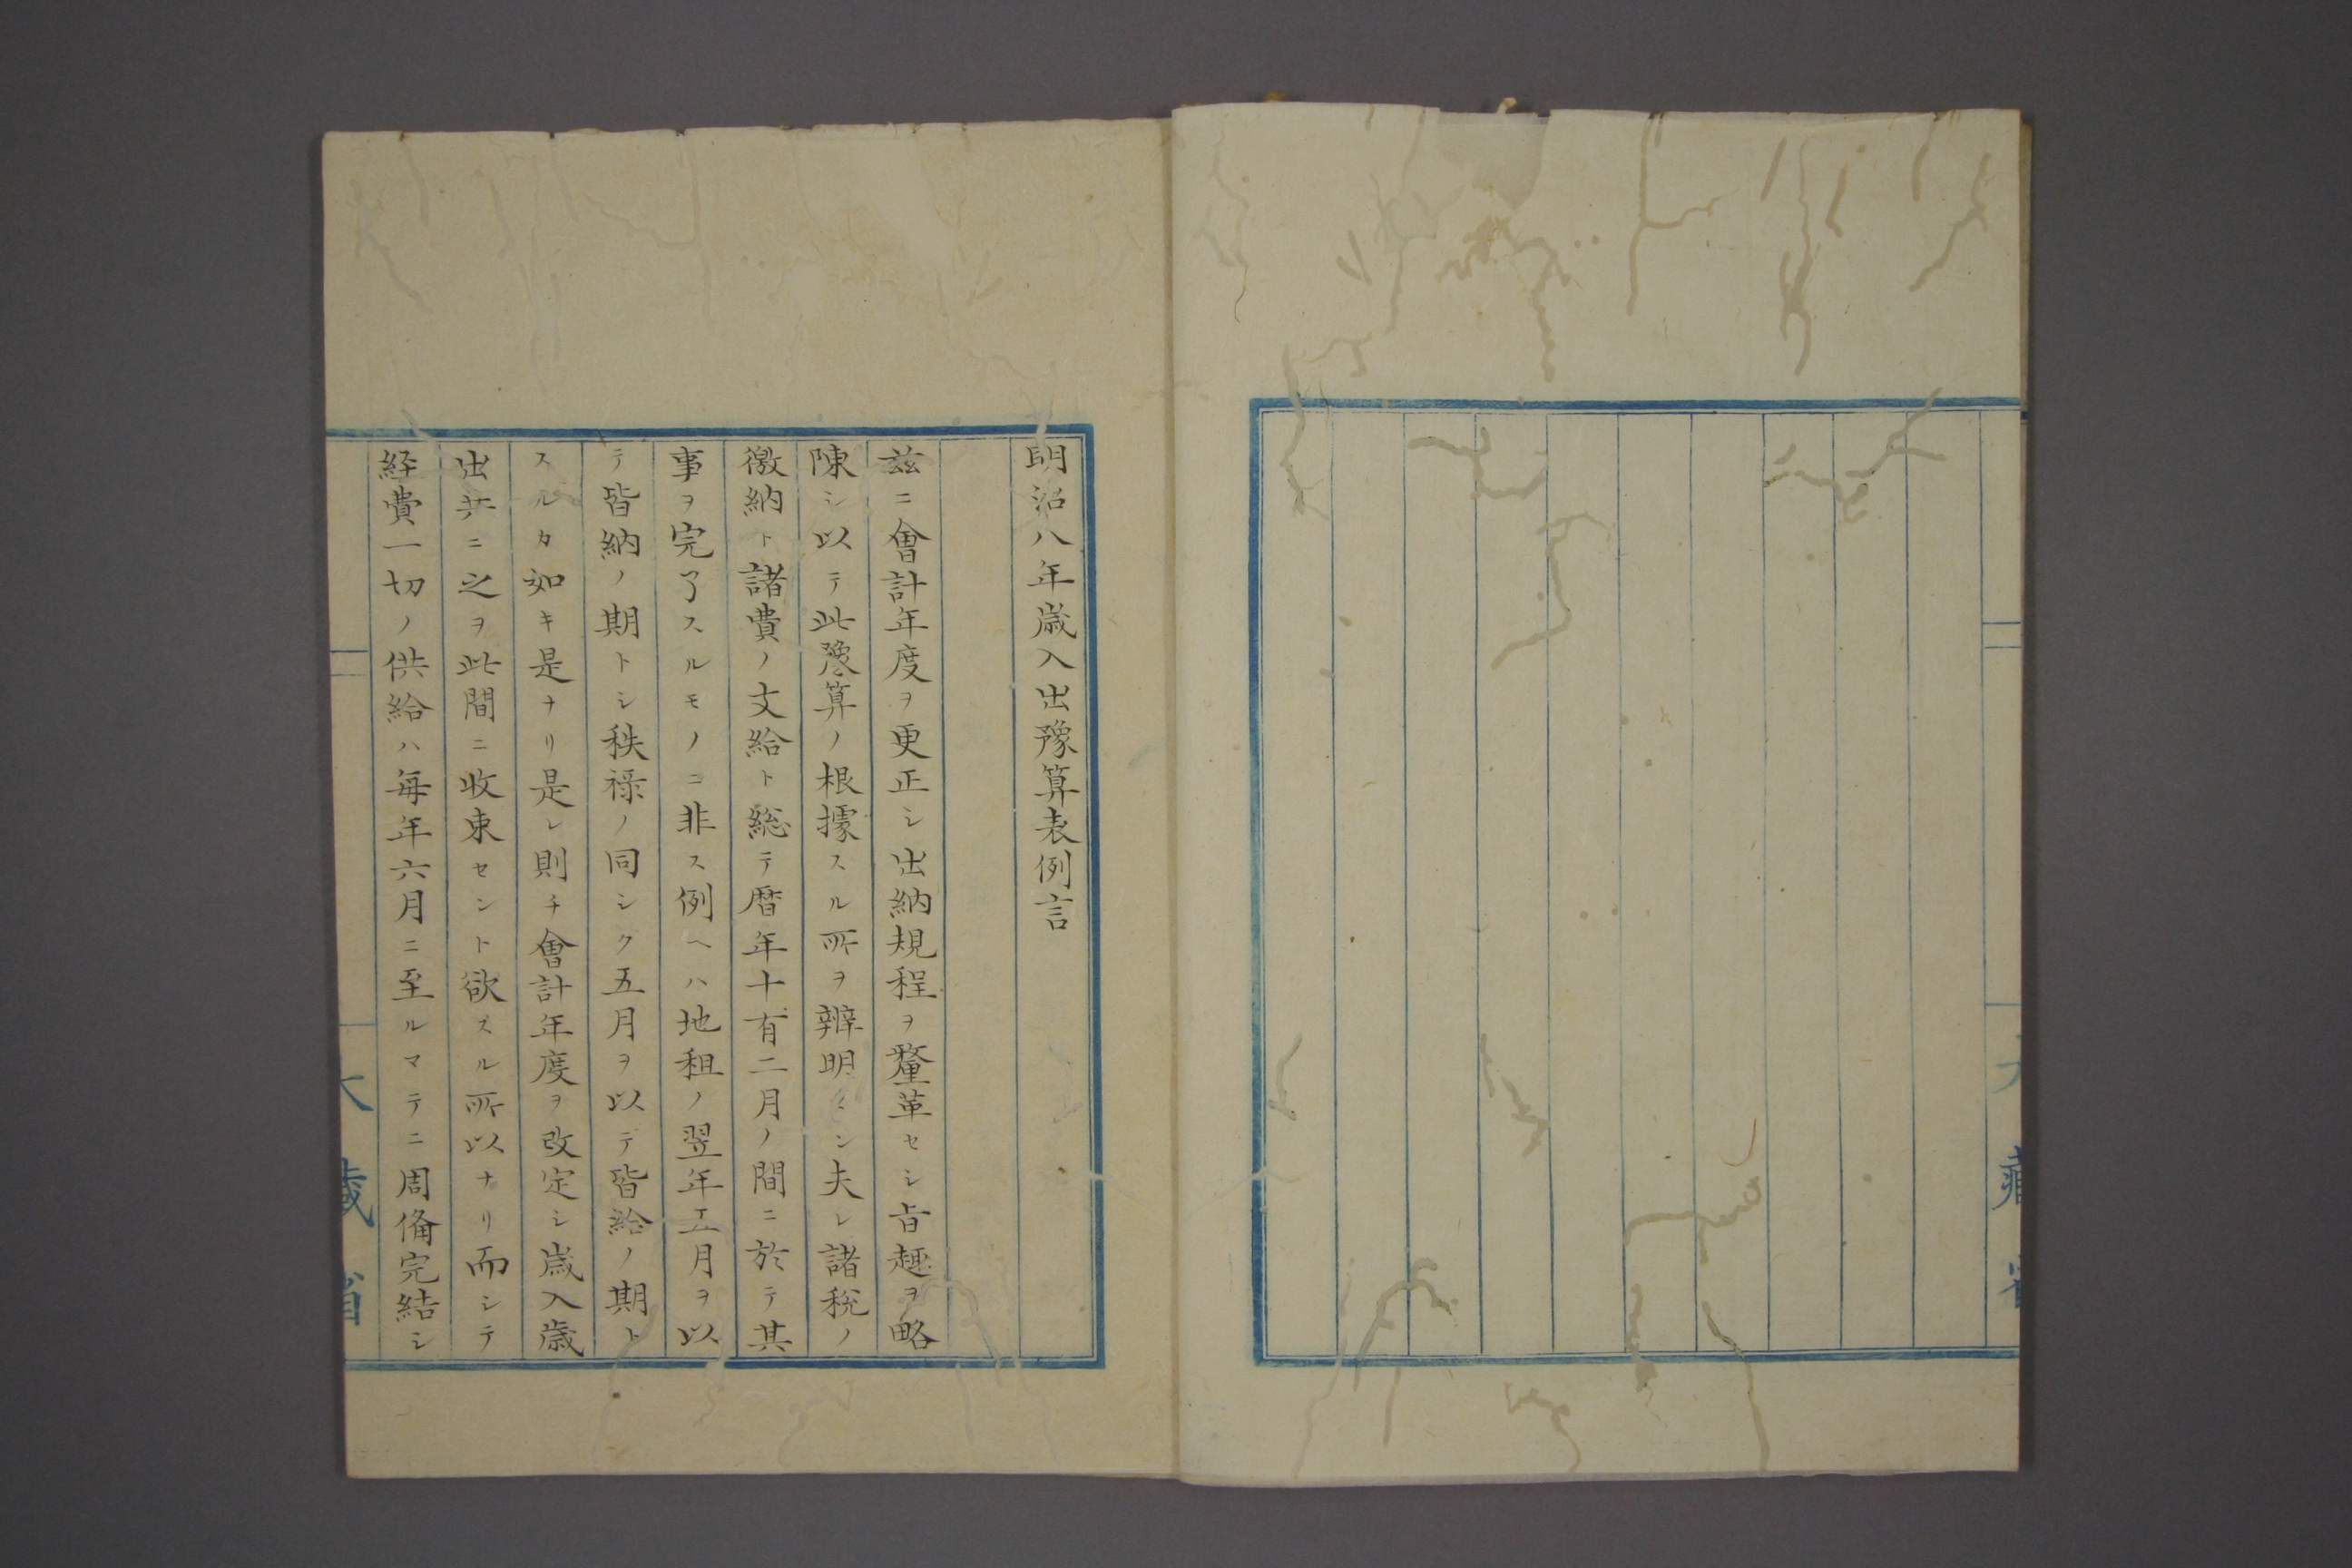 明治八年歳入出豫算表例言
茲ニ會計年度ヲ更正シ出納規程ヲ釐革セシ旨趣ヲ略
陳シ以テ此豫算ノ根據スル所ヲ辨明セン夫レ諸税ノ
徴納ト諸費ノ支給ト総テ暦年十有二月ノ間ニ於テ其
事ヲ完了スルモノニ非ス例ヘハ地租ノ翌年五月ヲ以
テ皆納ノ期トシ秩禄ノ同シク五月ヲ以テ皆給ノ期ト
スルカ如キ是ナリ是レ則チ會計年度ヲ改定シ歳入歳
出共ニ之ヲ此間ニ收束セント欲スル所以ナリ而シテ
経費一切ノ供給ハ毎年六月ニ至ルマテニ周備完結シ
大藏省